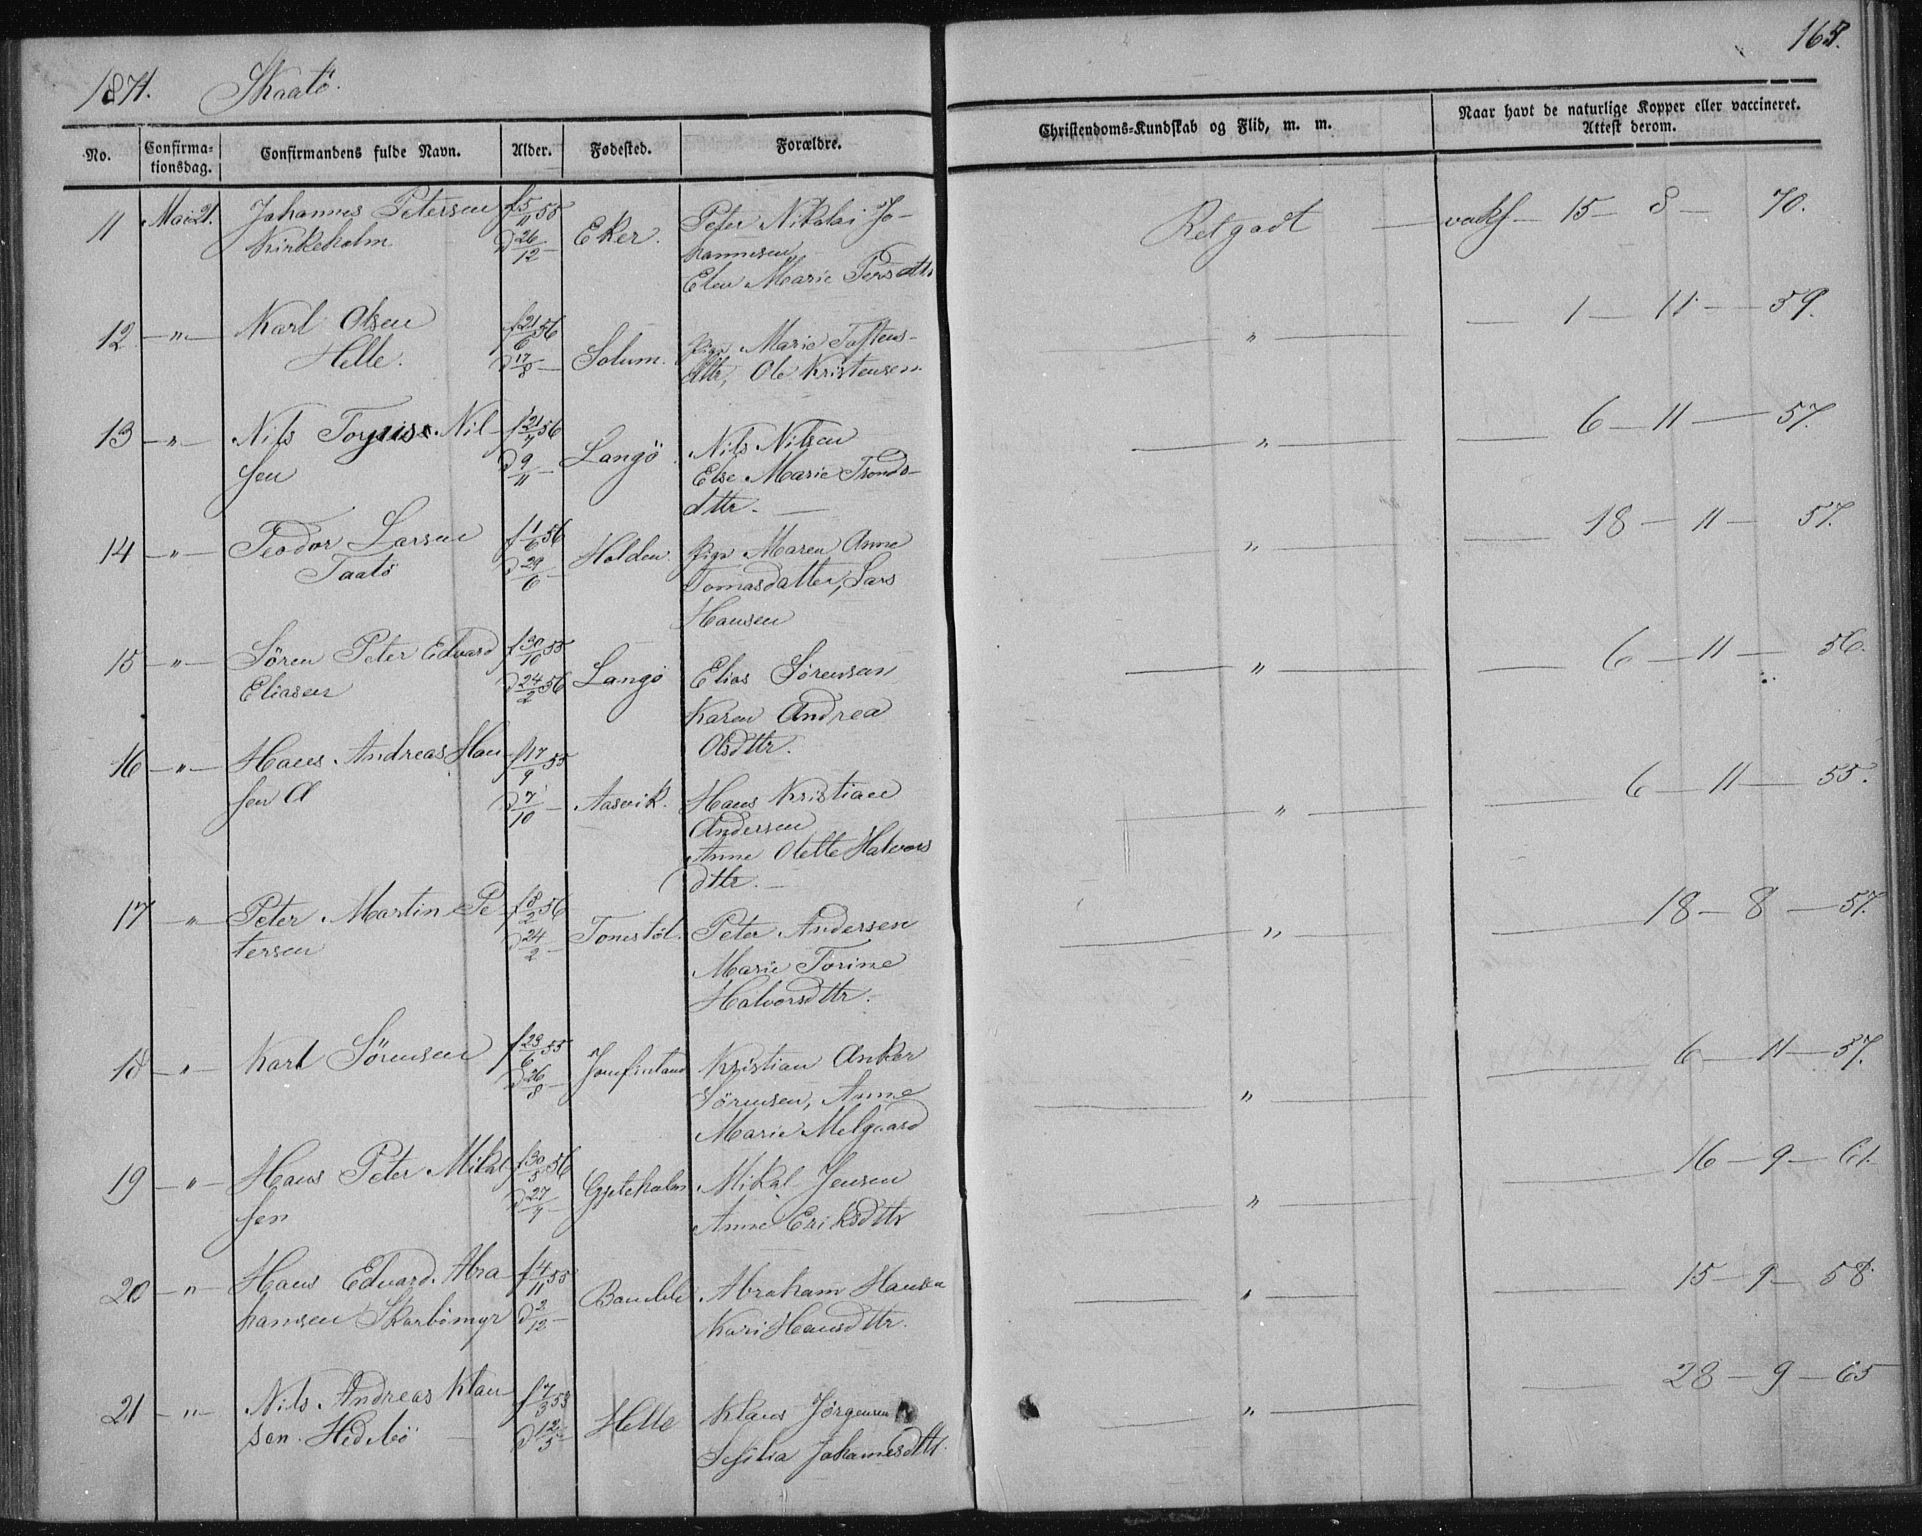 1871. Skaatö.
165.
No.
Confirma-
tionsdag.
Confirmandens fulde Navn.
Alder.
Fødested.
Forældre.
Christendoms-Kundskab og Flid, m. m.
Naar havt de naturlige Kopper eller vaccineret.
Attest derom.
11 Mai 21. Johannes Petersen f 5/11 55 Eker. Peter Nikolai Jo- Retgodt — 15 — 8 — 70.
Kirkeholm D 26/12 — hannesen,
Elen Marie
12 — " — Karl Olsen f 21/6 56 Solum. Pige Marie — " — — 1 — 11 — 59.
Helle. D 17/8 — dttr, Ole Kristensen
13 — " — Nils Nil- f 21/7 56 Langö. Nils Nilsen — " — — 6 — 11 — 57.
sen D 9/11 — Else Marie Tronds-
dttr. —
14 — " — Teodor Larsen f 1/6 56 Holden. Pige Maren Anne — " — — 18 — 11 — 57.
Taatö D 29/6 — Tomasdatter, Lars
Hansen
15 — " — Sören Peter Edvard f 30/10 55 Langö Elias Sörensen — " — — 6 — 11 — 56.
Eliasen D 24/2 56 Karen Andrea
Olsdttr.
16 — " — Hans Andreas Han- f 17/9 55 Aasvik. Hans Kristian — " — — 6 — 11 — 55.
sen A D 7/10 — Andersen
Anne Olette Halvors
dttr. —
17 — " — Peter Martin Pe- f 8/2 56 Tonestöl. Peter Andersen — " — — 18 — 8 — 57.
tersen D 24/2 — Marie Torine
Halvorsdttr.
18 — " — Karl Sörensen f 23/6 55 Jomfruland Kristian Anker — " — — 6 — 11 — 57.
D 26/8 — Sörensen, Anne
Marie Melgaard
19 — " — Hans Peter Mikal- f 30/5 56 Gjeteholm Mikal Jensen — " — — 16 — 9 — 61.
sen D 27/7 — Anne Eriksdttr
20 — " — Hans Edvard Abra- f 4/11 55 Bamble Abraham Hansen — " — — 15 — 9 — 58.
hamsen Skarbömyr D 2/12 — Kari Hansdttr.
21 — " — Nils Andreas Klau- f 7/3 53 Helle Klaus Jörgensen — " — — 28 — 9 — 65
sen Hedbö D 12/5 — Sesilia Johannesdttr.